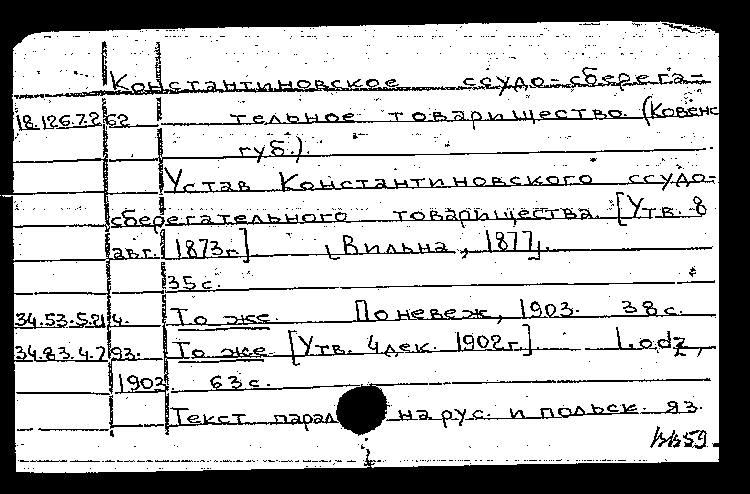 Константиновское ссудо-сберега-
18.126.7.262 тельное товарищество. (Ковенс
губ.).
Устав Константиновского ссудо-
сберегательного товарищества. [Утв. 8
авг. 1873г.] [Вильна, 1877].
35 с.
34.53.5. 4. То же. Поневеж, 1903. 38 с.
34.83.4.293. То же. [Утв. 4 дек. 1902 г.] Lodz,
1903. 63 с.
Текст парал на рус. и польск. яз.